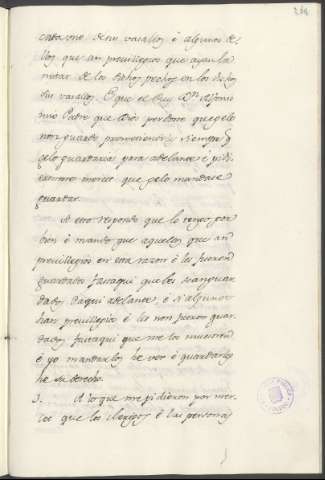 cada uno de sus vasallos é algunos de-
llos que an previllegios que ayan la
mitad de los dichos pechos en los dichos
sus vasallos. E que el Rey Dn Alfonso
mio Padre que Dios perdone que gelo
non guardó prometiendo siempre q
gelo guardaria para adelante é pi-
dieronme merced que gelo mandase
guardar.
A esto respondo que lo tengo por
bien é mando que aquellos que an
previllegios en esta razon é les fueron
guardados fasta aqui que les sean guar
dados daqui adelante, é si algunos
han previllegios é les non fueron guar
dados fasta aqui que me los muestren
é yo mandarlos he ver é guardarles
he su derecho.
3. A lo que me pidieron por mer-
ced que los clerigos é las personas